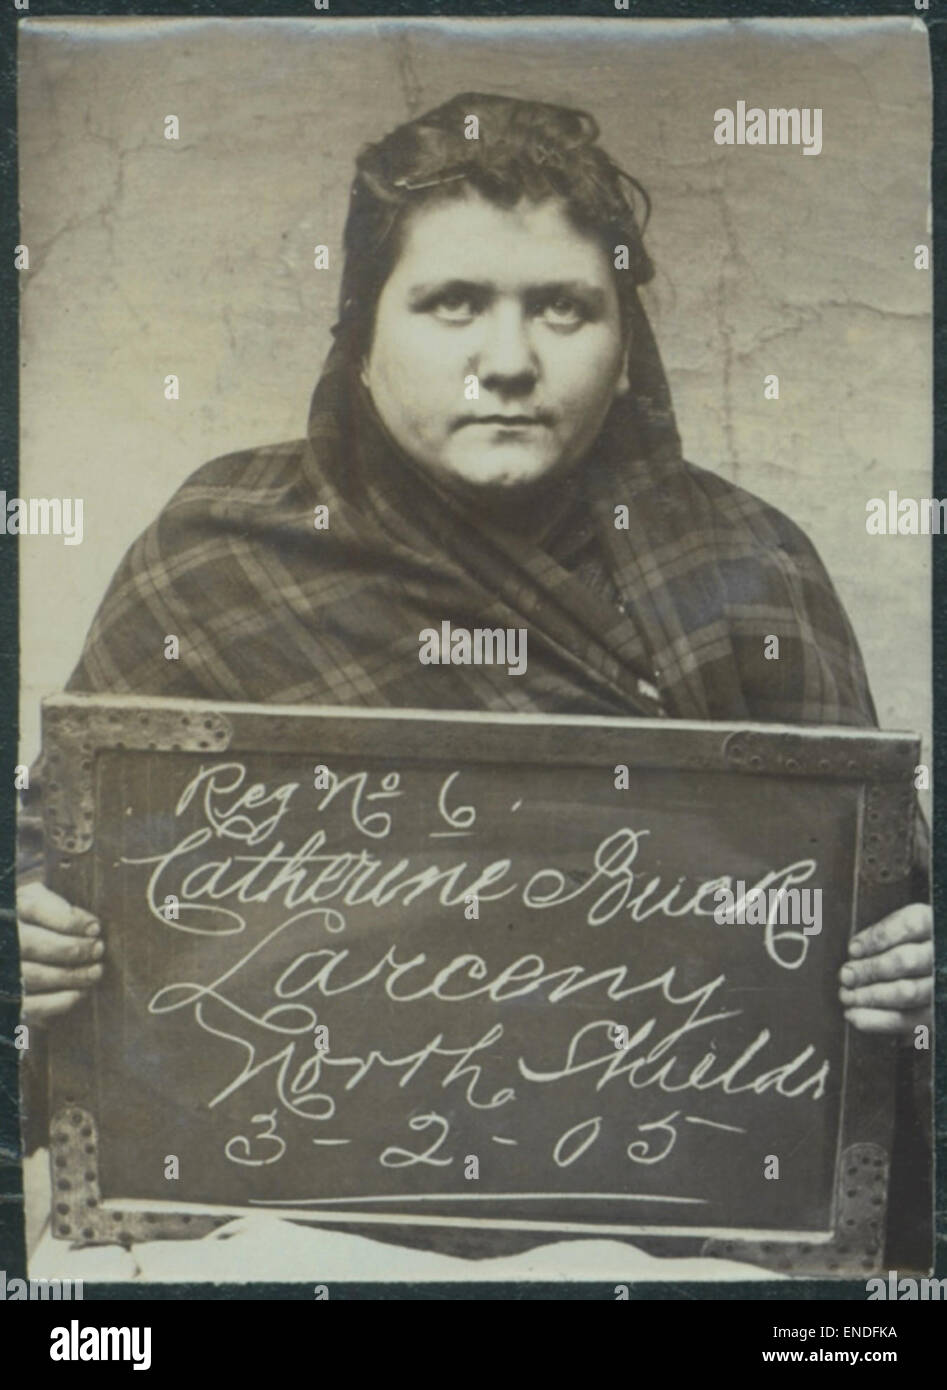 Reg No 6.
Catherine Buck
Larceny
North Shields
3-2-05
alamy
alamy
a
alamy
Image ID: ENDFKA
www.alamy.com